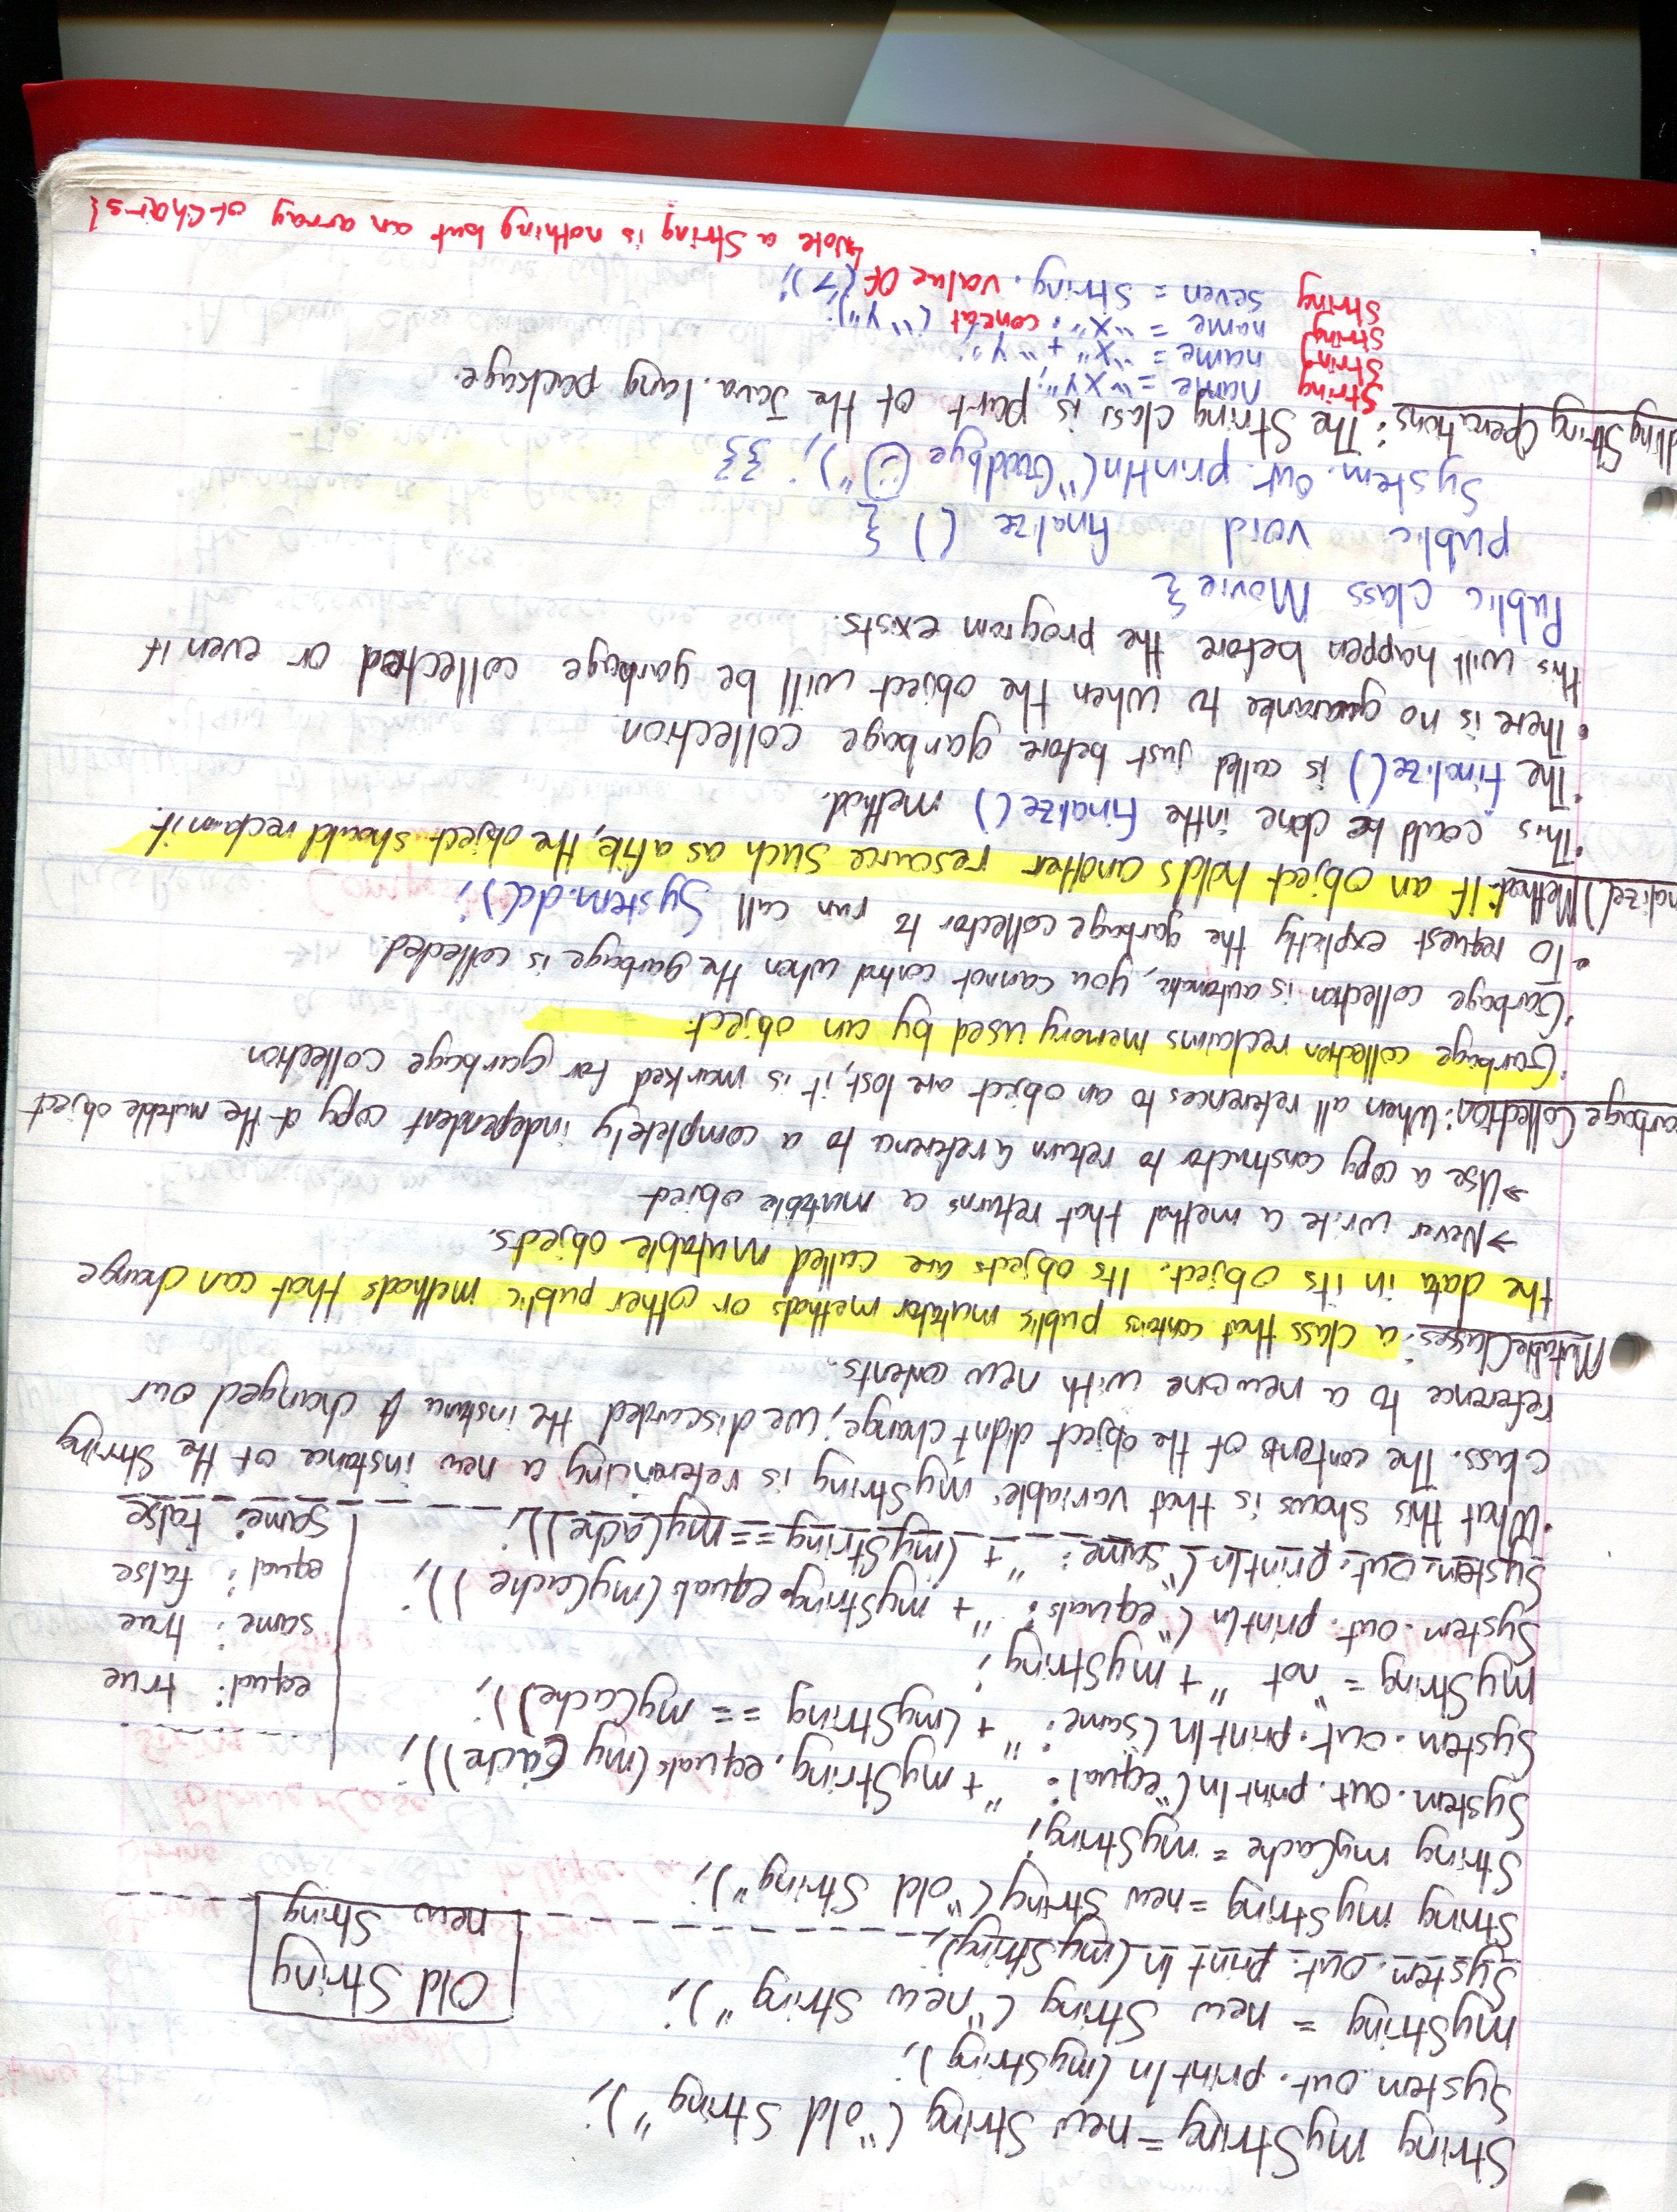 String myString = new String ("old String");
System.out.println(myString);
myString = new String ("new String");
System.out.println(myString);
Old String
new String
String myString = new String ("old String");
String myCache = myString;
System.out.println("equal: " + myString.equals(myCache));
System.out.println(same: " + (myString == myCache);
myString = "not " + myString;
System.out.println("equals: " + myString.equals(myCache));
System.out.println("same: " + (myString == myCache));
equal: true
same: true
equal: false
same: false
• What this shows is that variable myString is referencing a new instance of the String
class. The contents of the object didn't change; we discarded the instance & changed our
reference to a new one with new contents.
Mutable Classes: a class that contains public mutator methods or other public methods that can change
the data in its object. Its objects are called mutable objects.
→ Never write a method that returns a mutable object
→ Use a copy constructor to return a reference to a completely independent copy of the mutable object
arbage Collection: When all references to an object are lost, it is marked for garbage collection
• Garbage collection reclaims memory used by an object.
• Garbage collection is automatic, you cannot control when the garbage is collected.
• To request explicitly the garbage collector to run call System.dc();
nalize() Method: If an object holds another resource such as a file, the object should reclaim it.
• This could be done in the finalize() method.
• The finalize() is called just before garbage collection
• There is no guarantee to when the object will be garbage collected or even if
this will happen before the program exists.
Public class Movie {
public void finalize () {
System.out.println("Goodbye ☺"); }}
dling String Operations: The String class is part of the Java.lang package.
String name = "xy";
String name = "x" + "y";
String name = "x".concat("y");
String seven = String.valueOf(7);
↳ Note a String is nothing but an array of chars}